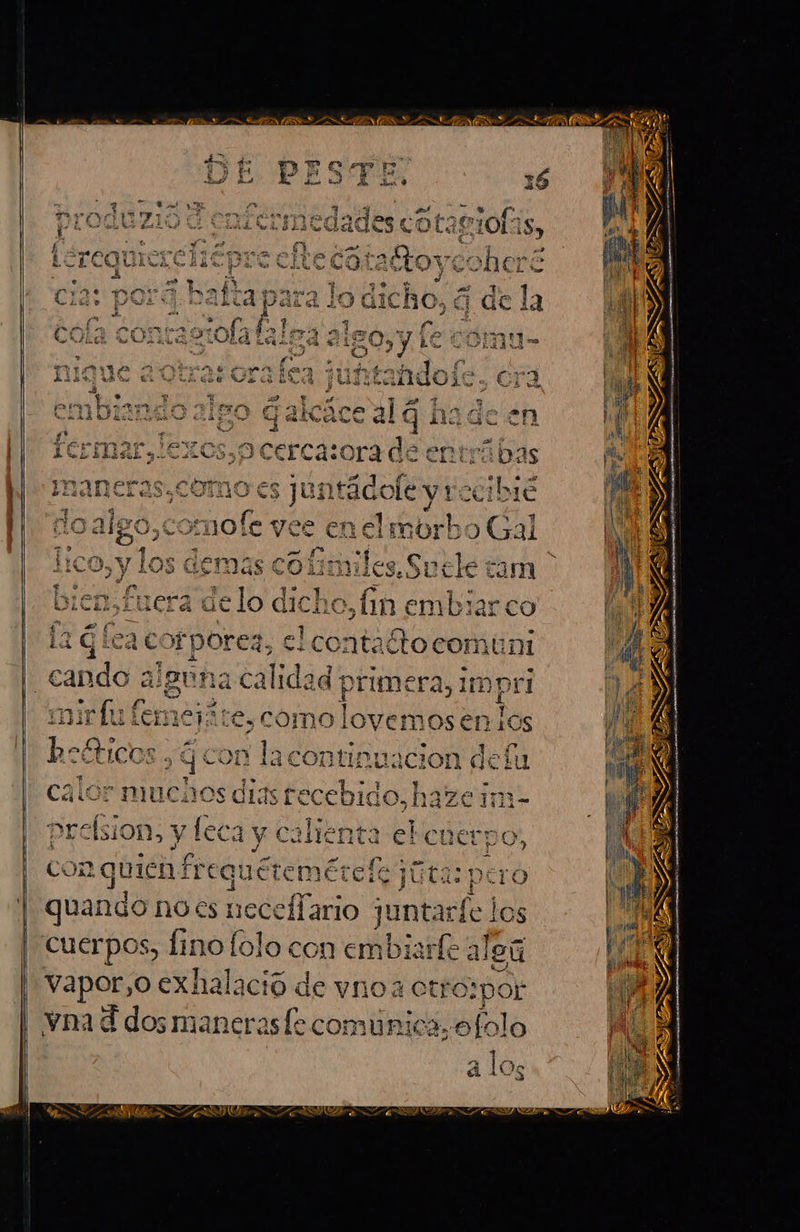 DE PESTE. 16
produziõ đ enfermedades cõtagiosas,
ſe requiere ſiẽpre eſte cõtacto y coherẽ
cia: porq̃ baſta para lo dicho, q̃ de la
coſa contagioſa ſalga algo, y ſe comu-
nique a otra: ora ſea juntandoſe, ora
embiando algo q̃ alcãce al q̃ ha de en
fermar, lexos, o cerca: ora de entrãbas
maneras, como es juntãdoſe y recibiẽ
do algo, como ſe vee en el morbo Gal
lico, y los demas cõſimiles. Suele tam
bien, fuera de lo dicho, ſin embiar co
ſa q̃ ſea corporea, el contacto comuni
cando alguna calidad primera, impri
mir ſu ſemejãte, como lo vemos en los
hecticos, q̃ con la continuacion de ſu
calor muchos dias recebido, haze im-
preſsion, y ſeca y calienta el cuerpo,
con quien frequẽtemẽte ſe jũta: pero
quando no es neceſſario juntarſe los
cuerpos, ſino ſolo con embiarſe algũ
vapor, o exhalaciõ de vno a otro: por
vna đ dos maneras ſe comunica, o ſolo
a los